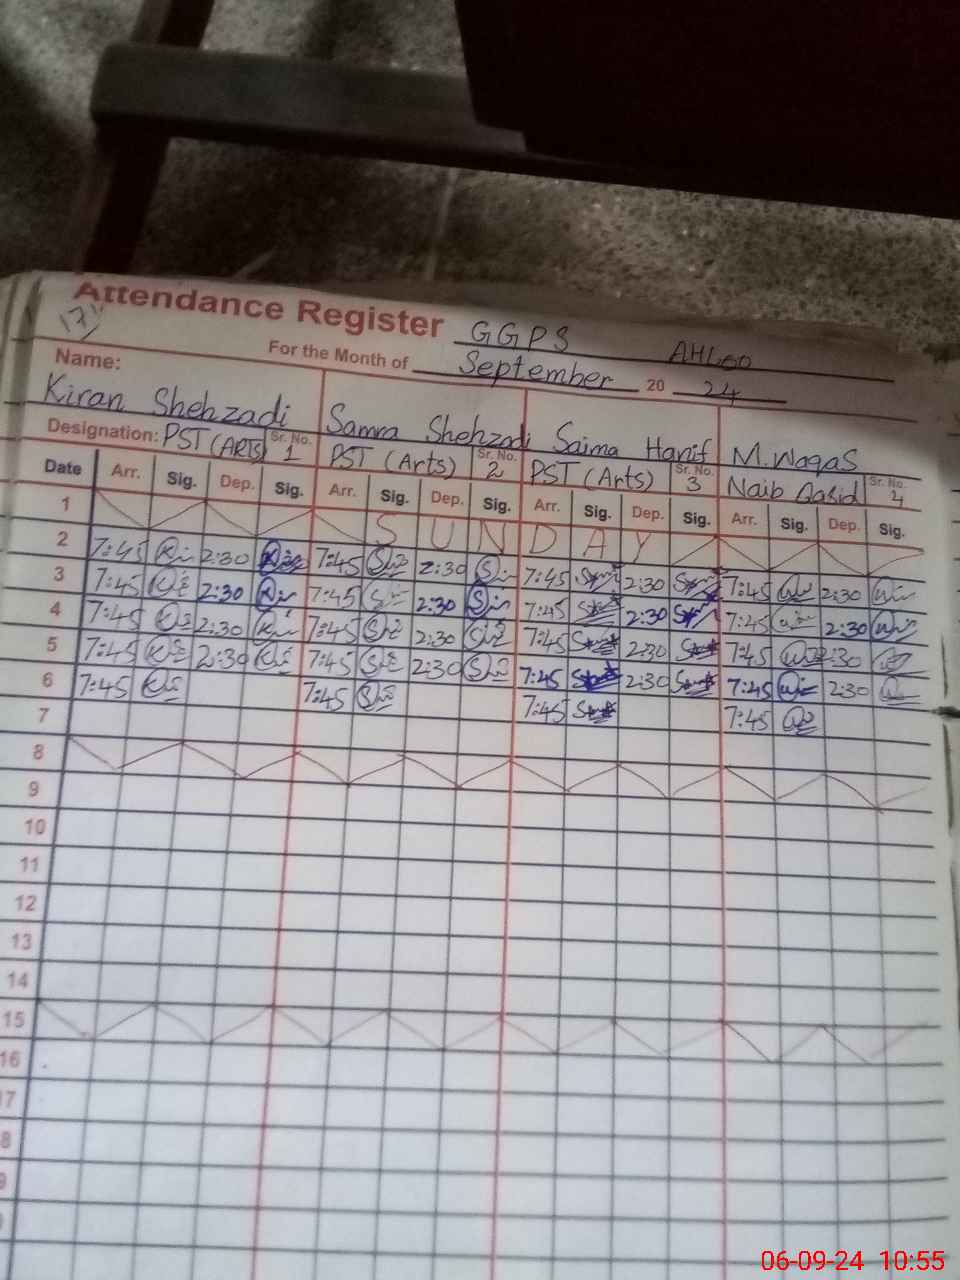 Attendance Register GGPS AHLOO
17
For the Month of September 20 24
Name:
Kiran Shehzadi Samra Shehzadi Saima Hanif M.Waqas
Designation: PST (ARTS) Sr. No. 1 PST (Arts) Sr. No. 2 PST (Arts) Sr. No. 3 Naib Qasid Sr. No. 4
Date Arr. Sig. Dep. Sig. Arr. Sig. Dep. Sig. Arr. Sig. Dep. Sig. Arr. Sig. Dep. Sig.
1 S U N D A Y
2 7:45 2:30 7:45 2:30 7:45 2:30 7:45 2:30
3 7:45 2:30 7:45 2:30 7:45 2:30 7:45 2:30
4 7:45 2:30 7:45 2:30 7:45 2:30 7:45 2:30
5 7:45 2:30 7:45 2:30 7:45 2:30 7:45 2:30
6 7:45 7:45 7:45 7:45
7
8
9
10
11
12
13
14
15
16
17
8
9
06-09-24 10:55